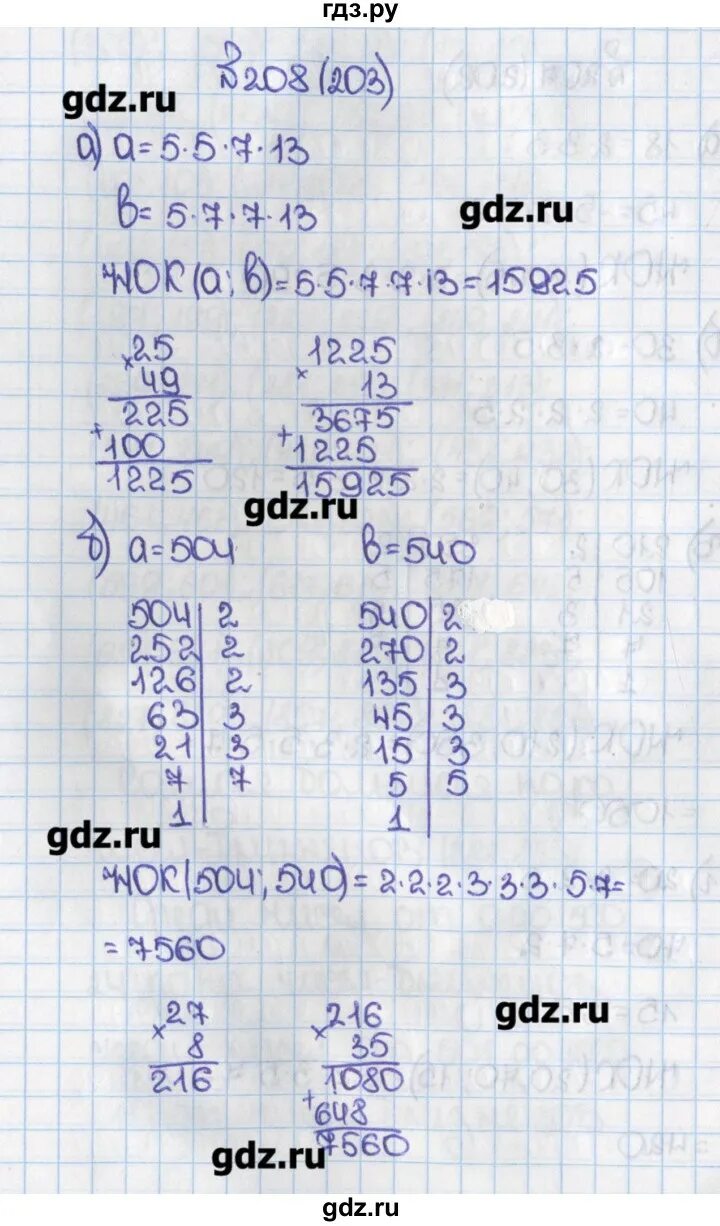 гдз.ру
№208(203)
gdz.ru
а) a=5·5·7·13
gdz.ru
b=5·7·7·13
НОК(a;b)=5·5·7·7·13=15925
25 1225
× 49 × 13
225 3675
+100 +1225
1225 15925
gdz.ru
б) a=504 b=540
504|2 540|2
252|2 270|2
126|2 135|3
63|3 45|3
21|3 15|3
7|7 5|5
1| 1|
gdz.ru
НОК(504;540)=2·2·2·3·3·3·5·7=
=7560
27 216
× 8 × 35
216 1080
+648
7560
gdz.ru
gdz.ru
gdz.ru